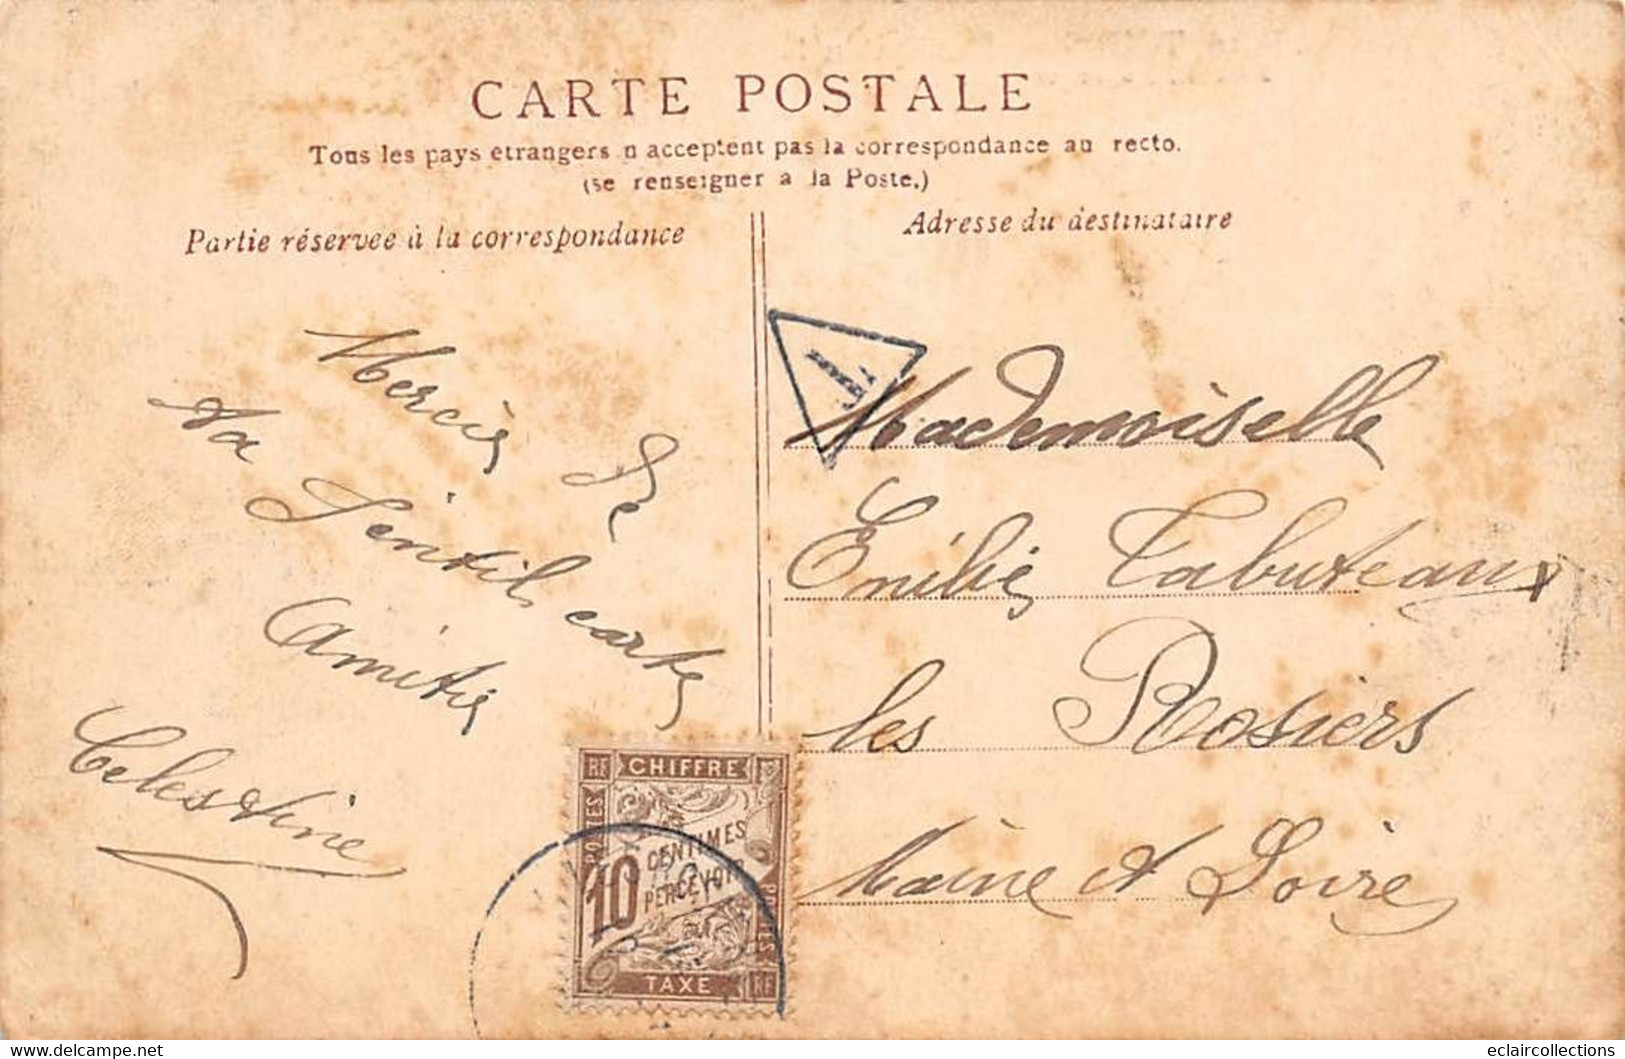 CARTE POSTALE
Tous les pays etrangers n acceptent pas la correspondance au recto.
(se renseigner a la Poste.)
Partie réservee à la correspondance
Adresse du destinataire
Mercie de
ta Jentil carte
Amitie
Celestine
T
Mademoiselle
Emilie Tabuteaux
les Rosiers
Maine et Loire
RF CHIFFRE
POSTES
10 CENTIMES
A PERCEVOIR
POSTES
TAXE RF
eclaircollections